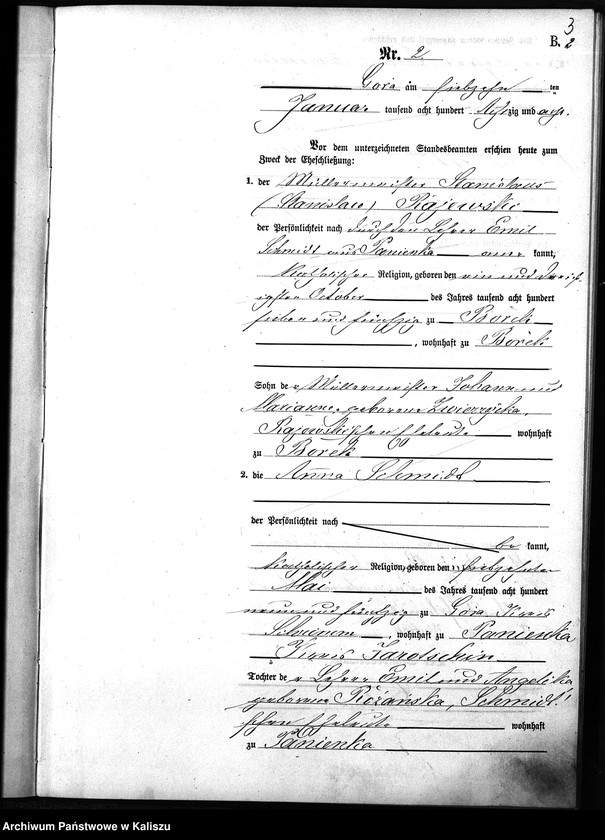 3
B. 2
Nr. 2.
Gora am siebzehn ten
Januar tausend acht hundert achtzig und acht.
Vor dem unterzeichneten Standesbeamten erschien heute zum
Zweck der Eheschließung:
1. der Müllermeister Stanislaus
(Stanislaw) Rajewski
der Persönlichkeit nach durch den Lehrer Emil
Schmidt aus Panienka aner kannt,
katholischer Religion, geboren den ein und dreiß-
igsten October des Jahres tausend acht hundert
sieben und fünfzig zu Borek
, wohnhaft zu Borek
Sohn der Müllermeister Johann und
Marianne, geborene Zwierzycka,
Rajewskischen Eheleute wohnhaft
zu Borek
2. die Anna Schmidt
der Persönlichkeit nach
be kannt,
katholischer Religion, geboren den siebzehnten
Mai des Jahres tausend acht hundert
neun und fünfzig zu Gora Kreis
, wohnhaft zu Panienka
Kreis Jarotschin
Tochter der Lehrer Emil und Angelika
geborene Różańska, Schmidt'
schen Eheleute wohnhaft
zu Panienka
Archiwum Państwowe w Kaliszu